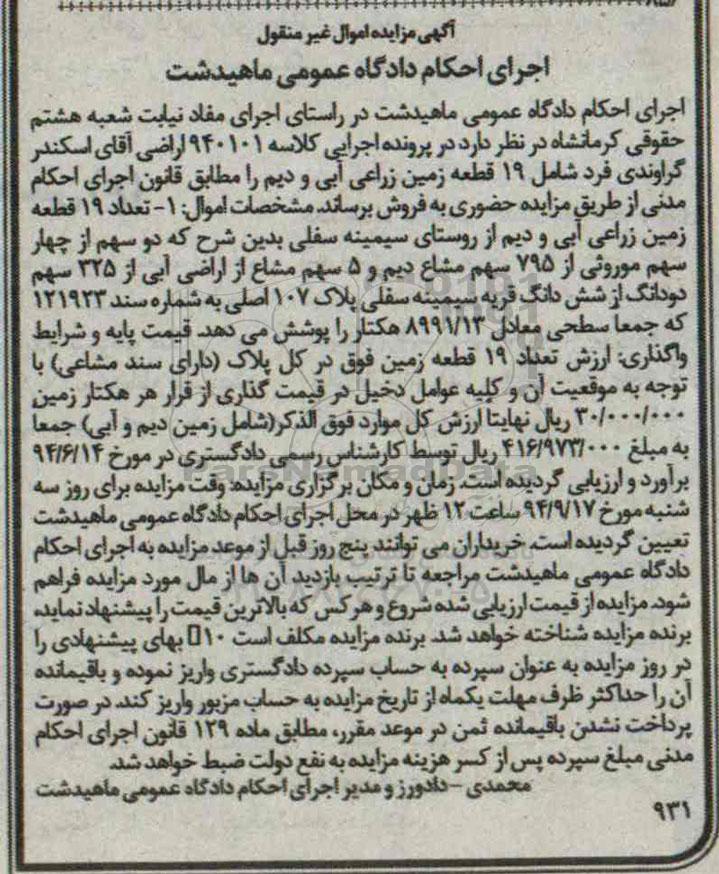 آگهی مزایده اموال غیر منقول
اجرای احکام دادگاه عمومی ماهیدشت
اجرای احکام دادگاه عمومی ماهیدشت در راستای اجرای مفاد نیابت شعبه هشتم
حقوقی کرمانشاه در نظر دارد در پرونده اجرایی کلاسه ۹۴۰۱۰۱ اراضی آقای اسکندر
گراوندی فرد شامل ۱۹ قطعه زمین زراعی آبی و دیم را مطابق قانون اجرای احکام
مدنی از طریق مزایده حضوری به فروش برساند. مشخصات اموال: ۱- تعداد ۱۹ قطعه
زمین زراعی آبی و دیم از روستای سیمینه سفلی بدین شرح که دو سهم از چهار
سهم موروثی از ۷۹۵ سهم مشاع دیم و ۵ سهم مشاع از اراضی آبی از ۳۲۵ سهم
دودانگ از شش دانگ قریه سیمینه سفلی پلاک ۱۰۷ اصلی به شماره سند ۱۲۱۹۲۳
که جمعا سطحی معادل ۸۹۹۱/۱۳ هکتار را پوشش می دهد. قیمت پایه و شرایط
واگذاری: ارزش تعداد ۱۹ قطعه زمین فوق در کل پلاک (دارای سند مشاعی) با
توجه به موقعیت آن و کلیه عوامل دخیل در قیمت گذاری از قرار هر هکتار زمین
۳۰/۰۰۰/۰۰۰ ریال نهایتا ارزش کل موارد فوق الذکر(شامل زمین دیم و آبی) جمعا
به مبلغ ۴۱۶/۹۷۳/۰۰۰ ریال توسط کارشناس رسمی دادگستری در مورخ ۹۴/۶/۱۴
برآورد و ارزیابی گردیده است. زمان و مکان برگزاری مزایده: وقت مزایده برای روز سه
شنبه مورخ ۹۴/۹/۱۷ ساعت ۱۲ ظهر در محل اجرای احکام دادگاه عمومی ماهیدشت
تعیین گردیده است. خریداران می توانند پنج روز قبل از موعد مزایده به اجرای احکام
دادگاه عمومی ماهیدشت مراجعه تا ترتیب بازدید آن ها از مال مورد مزایده فراهم
شود. مزایده از قیمت ارزیابی شده شروع و هر کس که بالاترین قیمت را پیشنهاد نماید،
برنده مزایده شناخته خواهد شد. برنده مزایده مکلف است ۱۰ بهای پیشنهادی را
در روز مزایده به عنوان سپرده به حساب سپرده دادگستری واریز نموده و باقیمانده
آن را حداکثر ظرف مهلت یکماه از تاریخ مزایده به حساب مزبور واریز کند. در صورت
پرداخت نشدن باقیمانده ثمن در موعد مقرر، مطابق ماده ۱۲۹ قانون اجرای احکام
مدنی مبلغ سپرده پس از کسر هزینه مزایده به نفع دولت ضبط خواهد شد.
محمدی – دادورز و مدیر اجرای احکام دادگاه عمومی ماهیدشت
۹۳۱
ParsNamadData